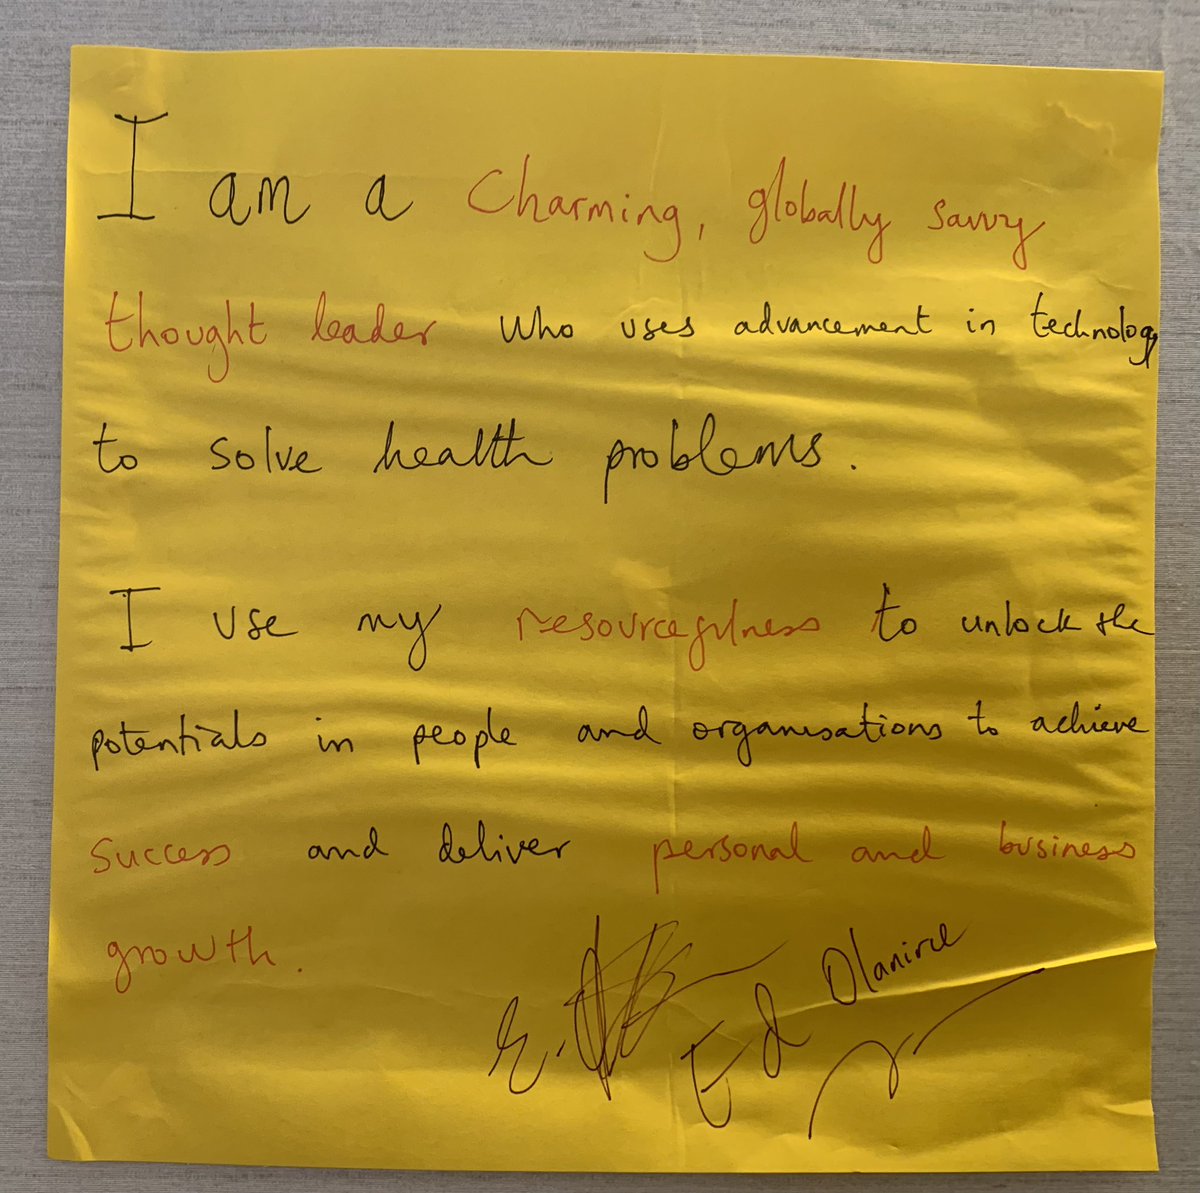 I am a Charming, globally savvy
thought leader who uses advancement in technology
to solve health problems.
I use my resourcefulness to unlock the
potentials in people and organisations to achieve
success and deliver personal and business
growth.
Ed Olanire